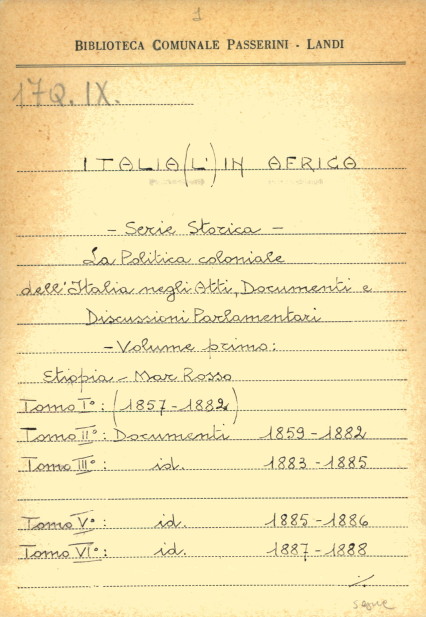 1
BIBLIOTECA COMUNALE PASSERINI - LANDI
17Q.IX.
ITALIA (L') IN AFRICA
- Serie Storica -
La Politica coloniale
dell'Italia negli Atti, Documenti e
Discussioni Parlamentari
- Volume primo:
Etiopia - Mar Rosso
Tomo I°: (1857-1882)
Tomo II°: Documenti 1859-1882
Tomo III°: id. 1883-1885
Tomo V°: id. 1885-1886
Tomo VI°: id. 1887-1888
./.